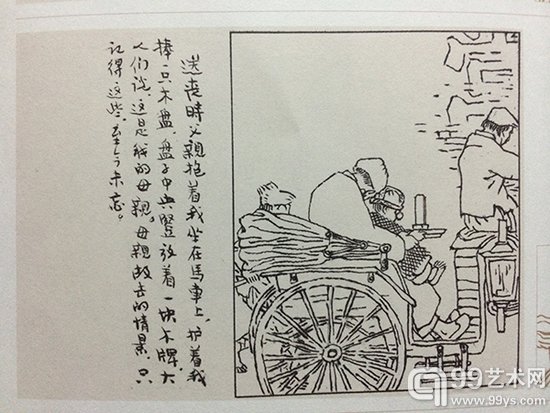 送喪時父親抱着我坐在馬車上，护着我
捧一只木盘，盘子中央竪放着一块木牌，大
人们说，这是我的母親。母親故去的情景，只
记得这些，至今未忘。
99艺术网
www.99ys.com